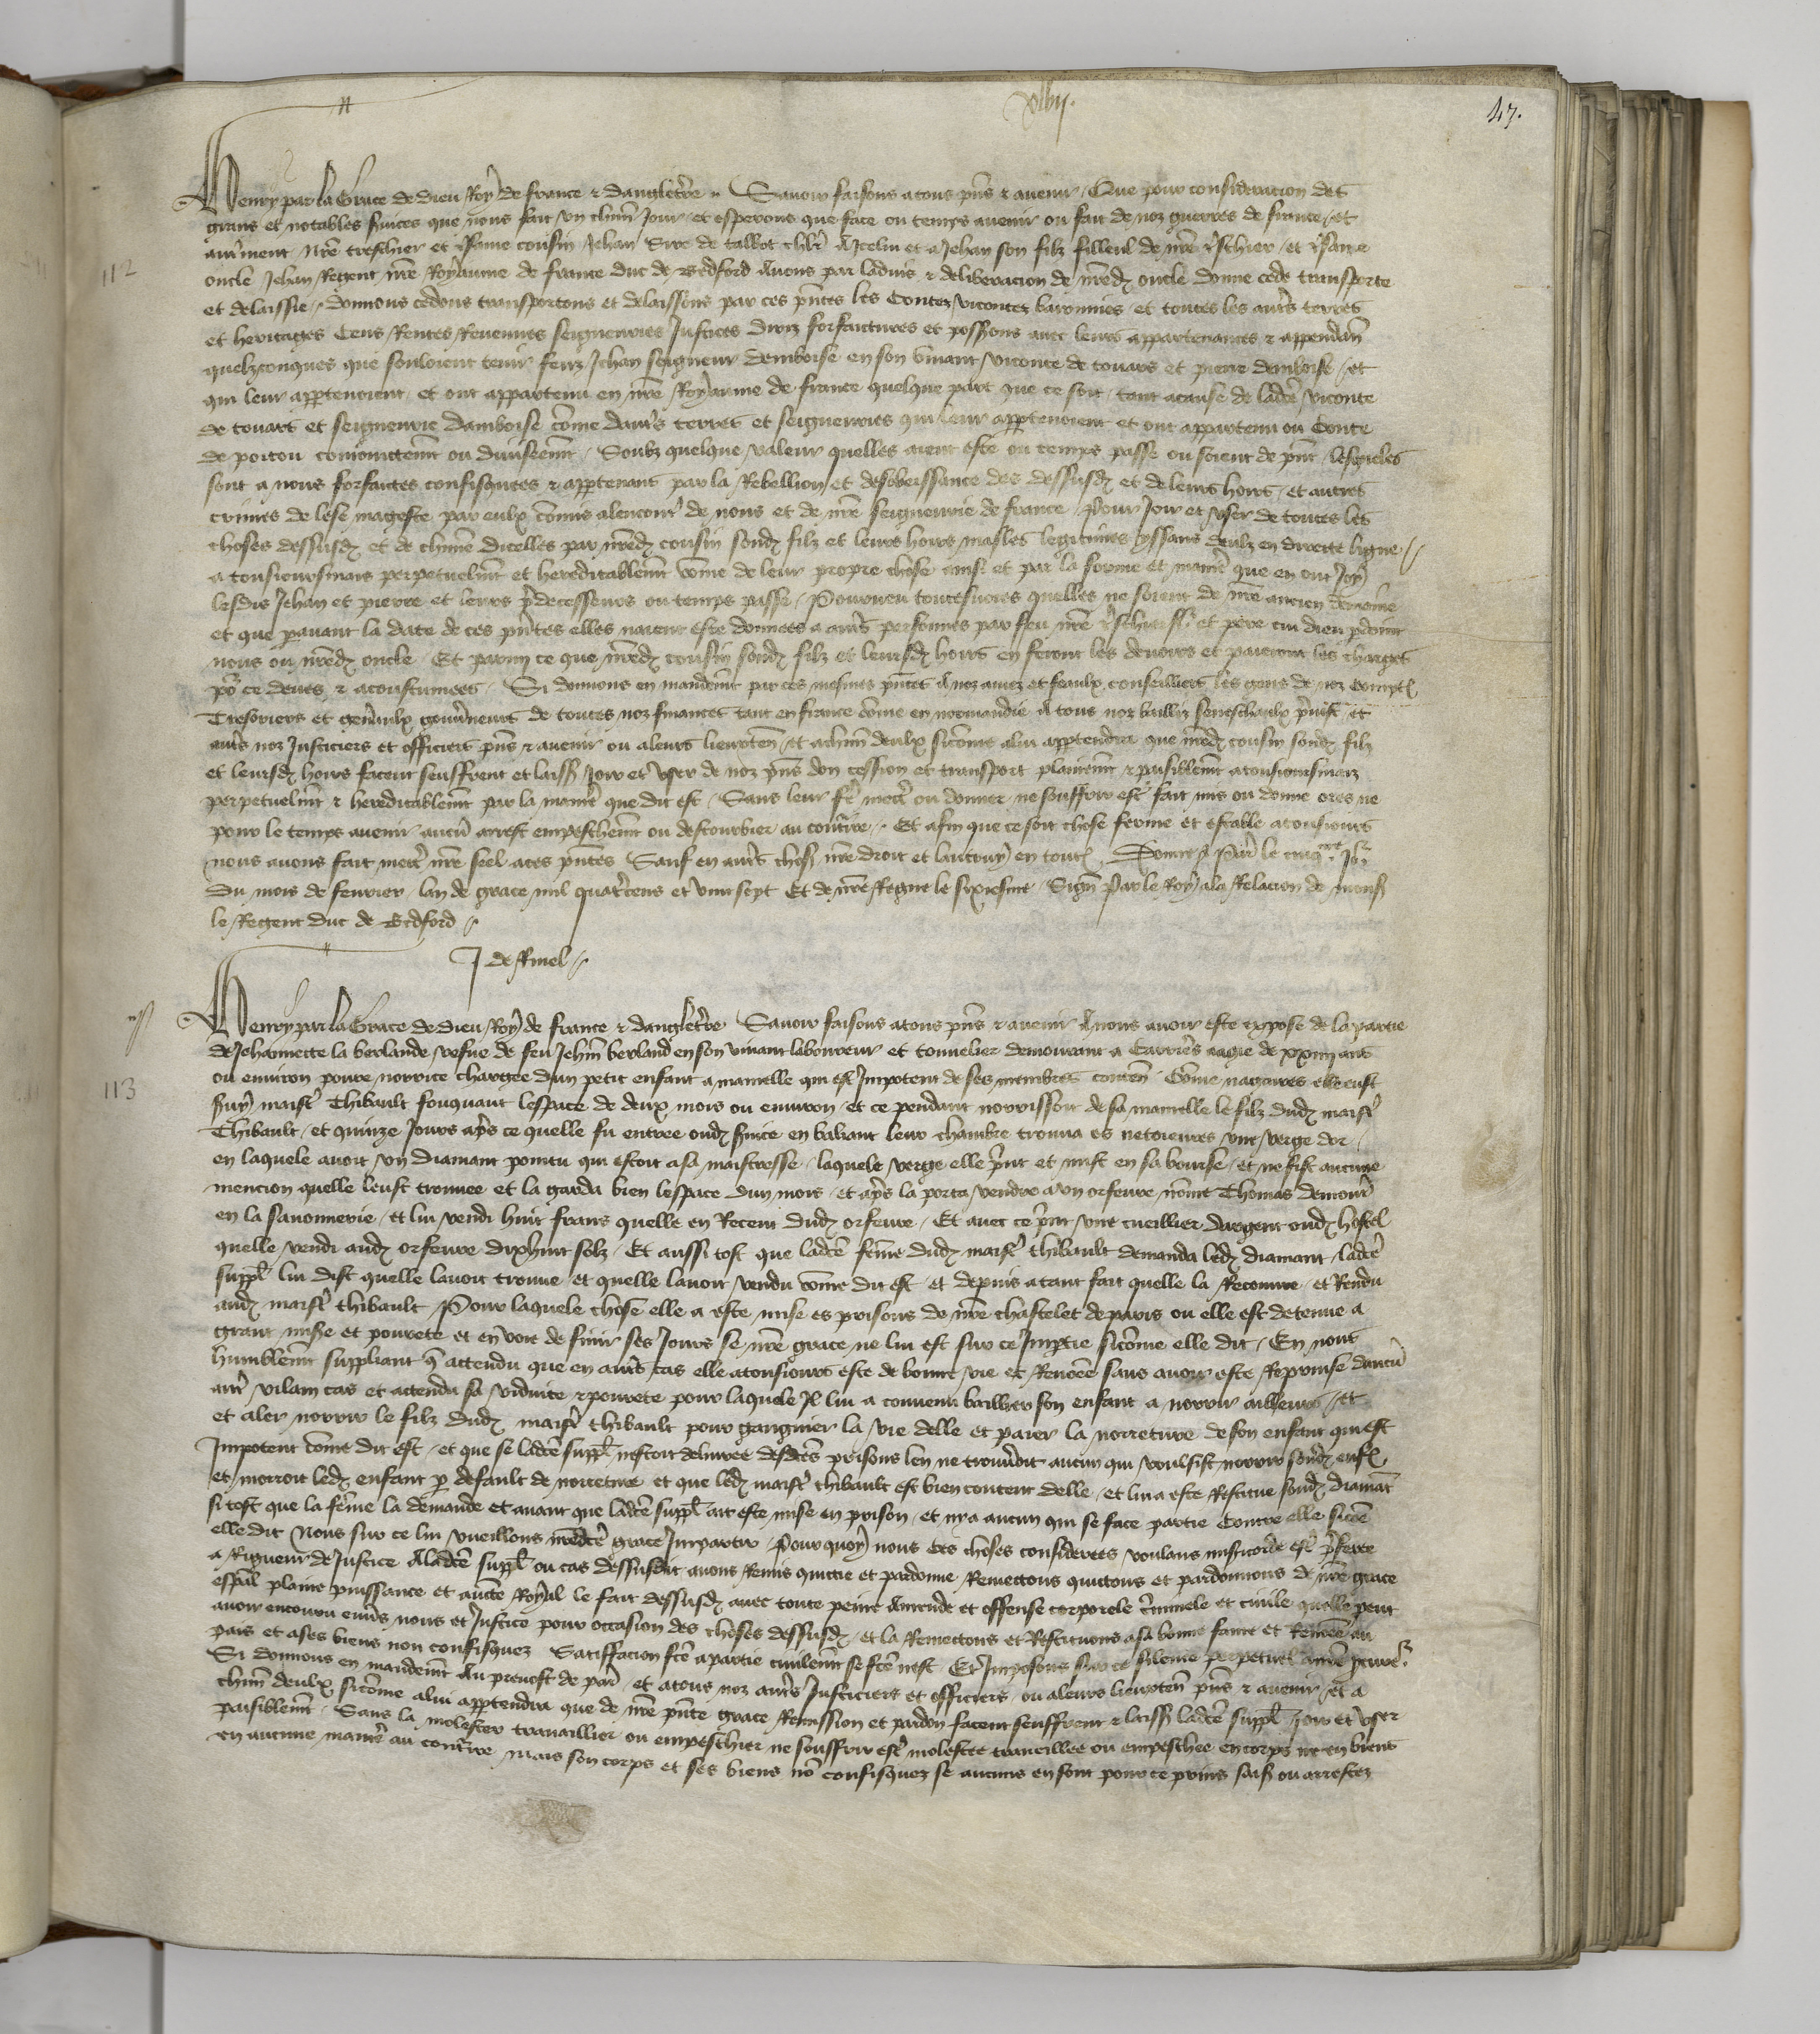 xlvij.
47.
Henry par la Grace de dieu Roy de france & dangleterre Savoir faisons a tous pns & avenir Que pour consideracion des
grans et notables svices que nous fait un chun Jour et esperons que face ou temps avenir ou fait de noz guerres de france et
autrment nre treschier et feame cousin Jehan Sire de talbot chlr A icelui et a Jehan son filz filleul de nre treschier et tresame
oncle Jehan Regent nre Royaume de france duc de Bedford Avons par ladvis & deliberacion de nredz oncle donne cede transporte
et delaissie donnons cedons transportons et delaissons par ces pntes les Contez vicontez baronnies et toutes les autrs terres
et heritages Cens Rentes Revenues seigneuries Justices droiz forfaictures et possions avec leurs appartenances & appendan
quelzconques que souloient tenir feuz Jehan seigneur damboise en son vivant viconte de touars et pierre damboise et
qui leur appartenoient et ont appartenu en nre Royaume de france quelque part que ce soit tant a cause de ladce viconte
de touars et seigneurie damboise come dautrs terres et seigneuries qui leur appartenoient et ont appartenu ou Conte
de poitou conioinctemt ou diviseemt Soubz quelque valeur quelles aient este ou temps passe ou soient de pnt lesqueles
sont a nous forfaictes confisquees & appartenans par la Rebellion et desobeissance des dessusdz et de leurs hoirs et autres
crimes de lese mageste par eulx comis alencontr de nous et de nre seigneurie de france Pour Joir et user de toutes les
choses dessusdz et de chune dicelles par nredz cousin sondz filz et leurs hoirs masles legitimes yssans deulz en directe ligne
a tousioursmais perpetuelmt et hereditablemt come de leur propre chose ainsi et par la forme et manier que en ont Joy
lesdis Jehan et pierre et leurs predecesseurs ou temps passe Pourveu toutesvoies quelles ne soient de nre ancien demaine
et que pavant la date de ces pntes elles naient este donnees a autrs personnes par feu nre treschier sr et pere cui dieu pdoint
nous ou nredz oncle Et parmi ce que nredz cousin sondz filz et leursdz hoirs en feront les devoirs et paieront les charges
por ce deues & acoustumees Si donnons en mandemt par ces mesmes pntes A noz amez et feaulx conseilliers les gens de noz comptes
Tresoriers et genraulx gouvrneurs de toutes noz finances tant en france come en normandie A tous noz bailliz seneschaulx prevostz et
autrs noz Justiciers et officiers pns & avenir ou a leurs lieuxten et a chun deulx sicome a lui appartendra que nredz cousin sondz filz
et leursdz hoirs facent seuffrent et laissent Joir et user de noz pns don cession et transport plainemt & paisiblemt a tousioursmais
perpetuelmt & hereditablemt par la manier que dit est Sans leur fe mectr ou donner ne souffrir estr fait mis ou donne ores ne
pour le temps avenir aucun arrest empeschemt ou destourbier au contrire Et afin que ce soit chose ferme et estable a tousiours
nous avons fait mectr nre seel a ces pntes Sauf en autrs choses nre droit et lautruy en toutes Donne a Paris le cinqme Jor
du mois de fevrier lan de grace mil quatrcens et vint sept Et de nre Regne le sixiesme Signe Par le Roy a la Relacion de mons
le Regent duc de Bedford
J de Rinel
112
Henry par la Grace de dieu Roy de france & dangleterre Savoir faisons a tous pns & avenir A nous avoir este expose de la partie
de Jehannette la berlande vefve de feu Jehan berland en son vivant laboureur et tonnelier demourant a Carrieres aagie de xxiiii ans
ou environ povre norrice chargee dun petit enfant a mamelle qui est Impotent de ses membres conten Come nagaires elle eust
suy maistr Thibault fouquant lespace de deux mois ou environ et ce pendant norrissoit de sa mamelle le filz dudz maistr
Thibault et quinze Jours aprs ce quelle fu entree oudz svice en baliant leur chambre trouva es netoieures une verge dor
en laquele avoit un diamant pointu qui estoit a sa maistresse laquele verge elle prnt et mist en sa bourse et ne fist aucune
mencion quelle leust trouvee et la garda bien lespace dun mois et aprs la porta vendre a un orfevre nome Thomas demourant
en la savonnerie et lui vendi huit frans quelle en Receut dudz orfevre Et avec ce prnt une cueillier dargent oudz hostel
quelle vendi audz orfevre dixhuit solz Et aussi tost que ladce feme dudz maistr thibault demanda ledz diamant ladce
suppl lui dist quelle lavoit trouve et quelle lavoit vendu come dit est et depuis a tant fait quelle la Recouvre et Rendu
audz maistr thibault Pour laquele chose elle a este mise es prisons de nre chastelet de paris ou elle est detenue a
grant misse et povrete et en voie de finir ses Jours se nre grace ne lui est sur ce Imptie sicome elle dit En nous
humblemt suppliant que attendu que en autrs cas elle a tousiours este de bonne vie et Renomee sans avoir este Reprinse daucun
autr vilain cas et attendu sa viduite & povrete pour laquele Il lui a convenu baillier son enfant a norrir ailleurs et
et aler norrir le filz dudz maistr thibault pour gaignier la vie delle et paier la norreture de son enfant qui est
Impotent come dit est et que se ladce suppl nestoit delivree desdces prisons len ne trouveroit aucun qui voulsist norrir sondz enft
et morroit ledz enfant p default de norreture et que ledz maistr thibault est bien content delle et lui a este Restitue sondz diamant
si tost que la feme la demande et avant que ladce suppl ait este mise en prison et ny a aucun qui se face partie contre elle sicome
elle dit Nous sur ce lui vueillons nredce grace Impartir Pourquoy nous ces choses considerees voulans misericorde estr preferee
a Rigueur de Justice A ladce suppl ou cas dessusdit avons Remis quictie et pardonne Remectons quictons et pardonnons de nre grace
espal plaine puissance et aucte Royal le fait dessusdz avec toute peine Amende et offense corporele criminele et civile quelle peut
avoir encouru envrs nous et Justice pour occasion des choses dessusdz et la Remectons et Restituons a sa bonne fame et Renomee au
pais et a ses biens non confisquez Satisfacion fce a partie civilemt se fce nest Et Imposons sur ce silence perpetuel a nre procur
Si donnons en mandemt Au prevost de paris et a tous noz autrs Justiciers et officiers ou a leurs lieuxten pns & avenir et a
chun deulx sicome a lui appartendra que de nre pnte grace Remission et pardon facent seuffrent & laissent ladce suppl joir et user
paisiblemt Sans la molester travaillier ou empeschier ne souffrir estr molestee travaillee ou empeschee en corps ne en biens
en aucune manier au contrire mais son corps et ses biens no confisquez se aucuns en sont pour ce prins saisiz ou arrestez
113